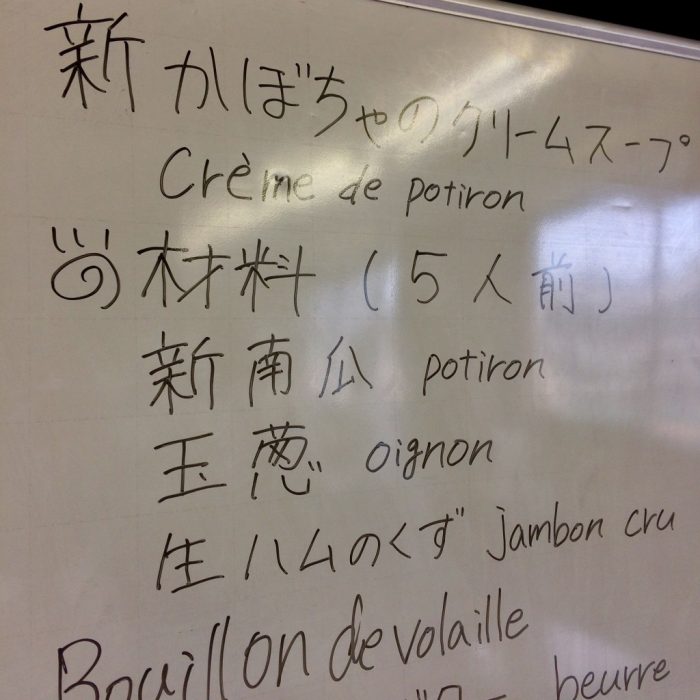 新かぼちゃのクリームスープ
Crème de potiron
材料(5人前)
新南瓜 potiron
玉葱 oignon
生ハムのくず jambon cru
Bouillon de volaille
beurre